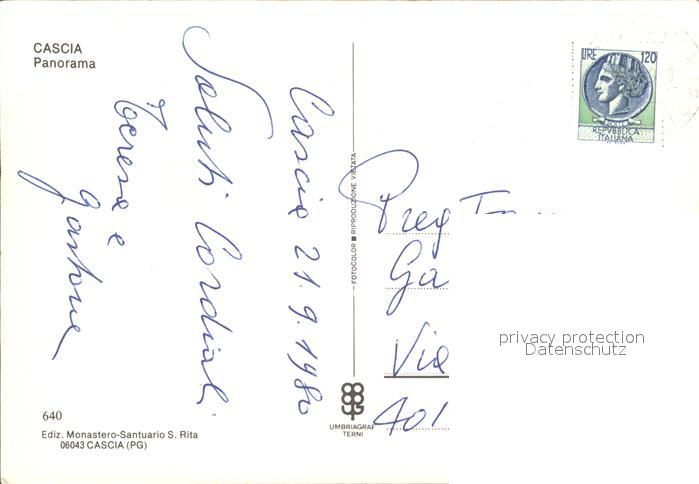 CASCIA
Panorama
Cascia 21.9.1980
Saluti Cordiali
Teresa e
Gastone
FOTOCOLOR ■ RIPRODUZIONE VIETATA
LIRE 120
REPVBBLICA
ITALIANA
Preg
Ga
Via
401
privacy protection
Datenschutz
640
Ediz. Monastero-Santuario S. Rita
06043 CASCIA (PG)
UMBRIAGRAF
TERNI